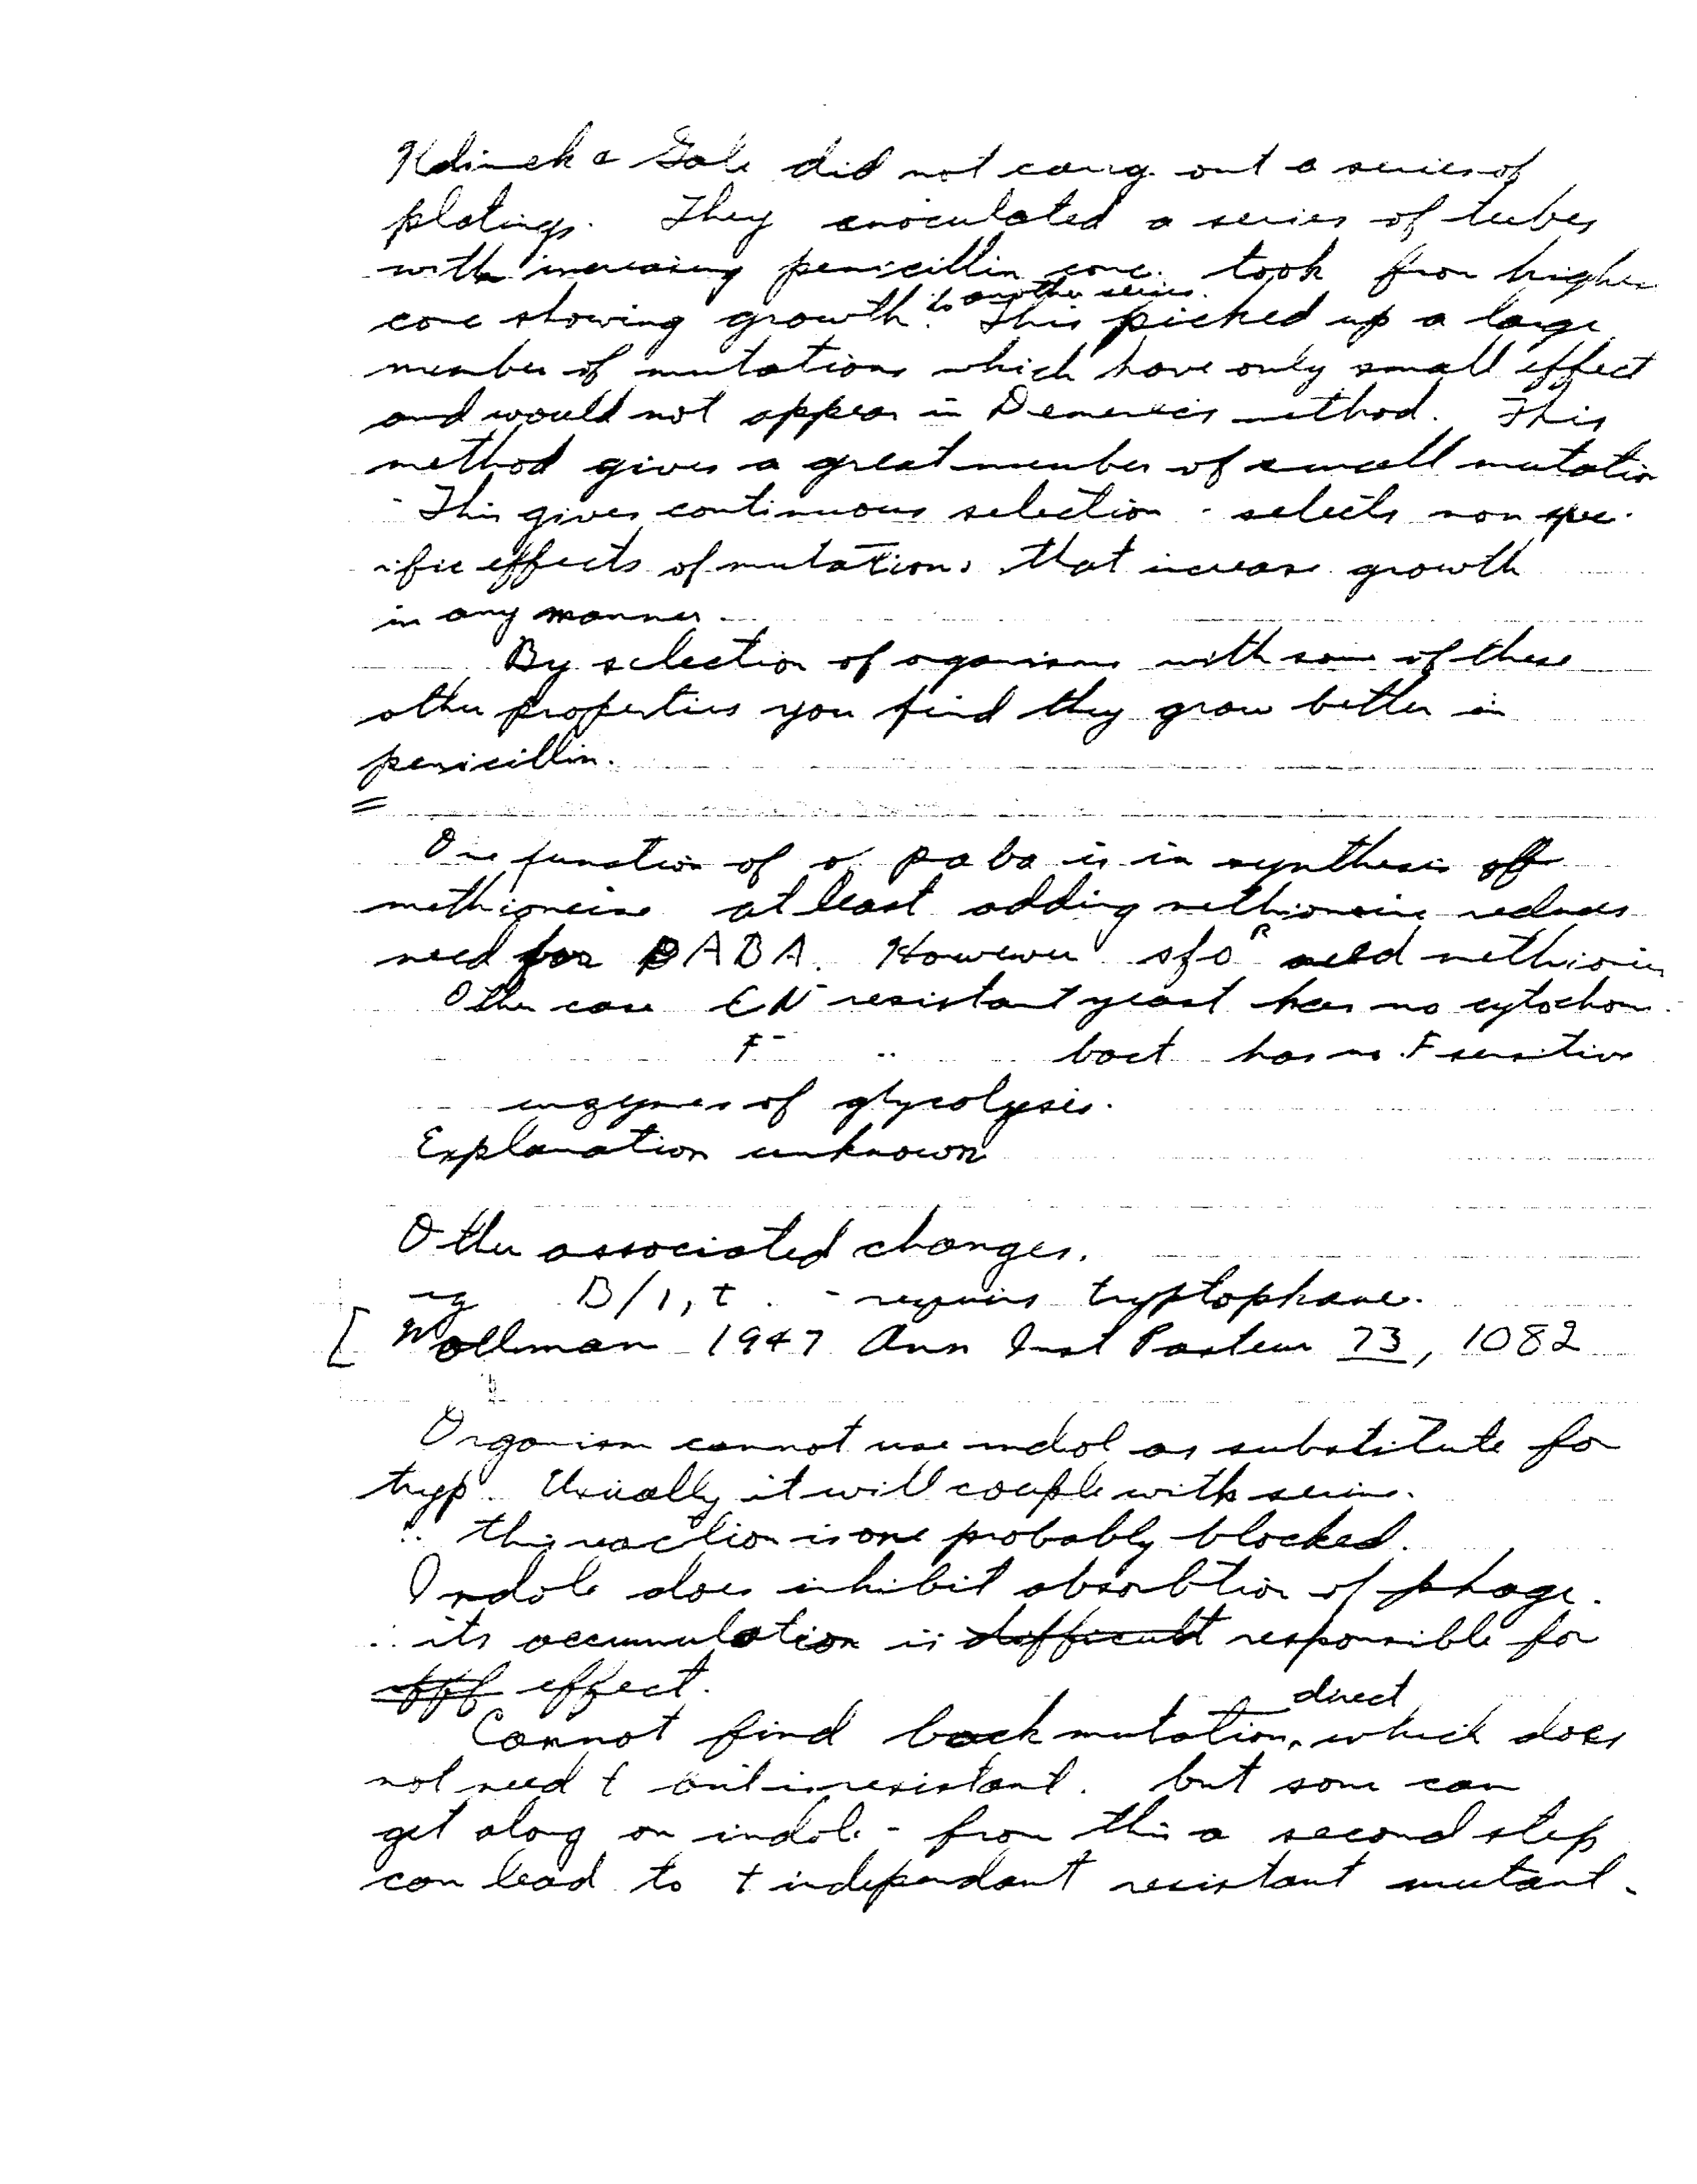 & Gale did not carry out a series of
platings. They inoculated a series of tubes
with increasing penicillin conc. took from higher
conc showing growth to another series. This picked up a large
number of mutations which have only small effect
and would not appear in Demerecs method. This
method gives a great number of small mutation
- This gives continuous selection - selects non spec-
ific effects of mutations that increase growth
in any manner.
By selection of organisms with some of these
other properties you find they grow better in
penicillin.
=
One function of paba is in synthesis of
methioneine at least adding methioneine reduces
need for PABA. However sfoᴿ need methionin
Other case CN⁻ resistant yeast has no cytochom
F⁻ " bact has no F sensitive
enzymes of glycolysis.
Explanation unknown
Other associated changes.
eg B/1,t - requires tryptophane.
[ Wollman 1947 Ann Inst Pasteur 73, 1082
Organism cannot use indol as substitute for
tryp. Usually it will couple with serine.
∴ this reaction is one probably blocked.
Indole does inhibit absorbtion of phage.
∴ its accumulation is difficult responsible for
effect.
Cannot find back mutation, direct which does
not need t but is resistant. but some can
get along on indole - from this a second step
can lead to t independant resistant mutant.